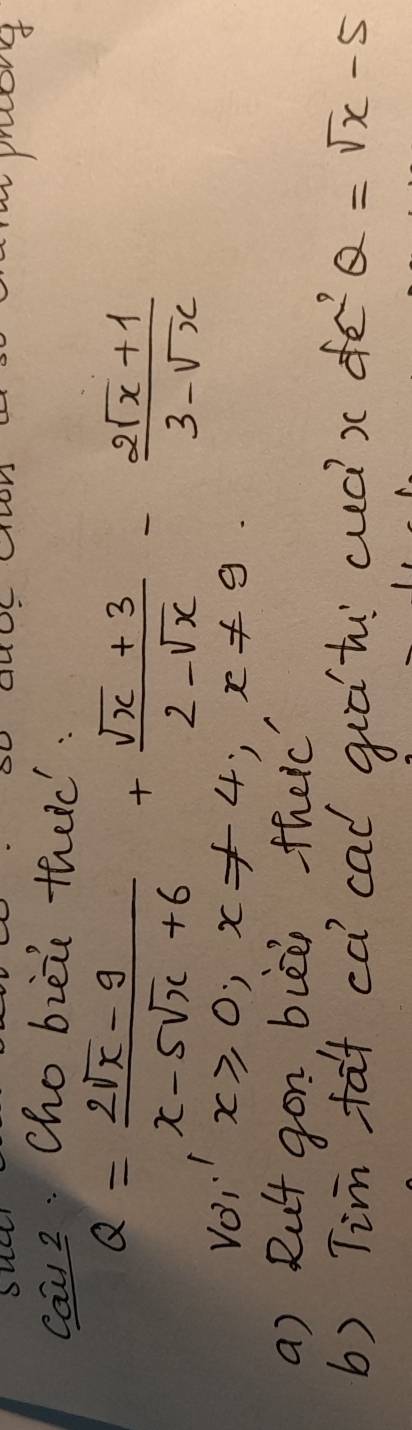 Câu 2: Cho biểu thức:
Q = (2√x - 9)/(x - 5√x + 6) + (√x + 3)/(2 - √x) - (2√x + 1)/(3 - √x)
Với x ⩾ 0; x ≠ 4; x ≠ 9.
a) Rút gọn biểu thức
b) Tìm tất cả các giá trị của x để Q = √x - 5